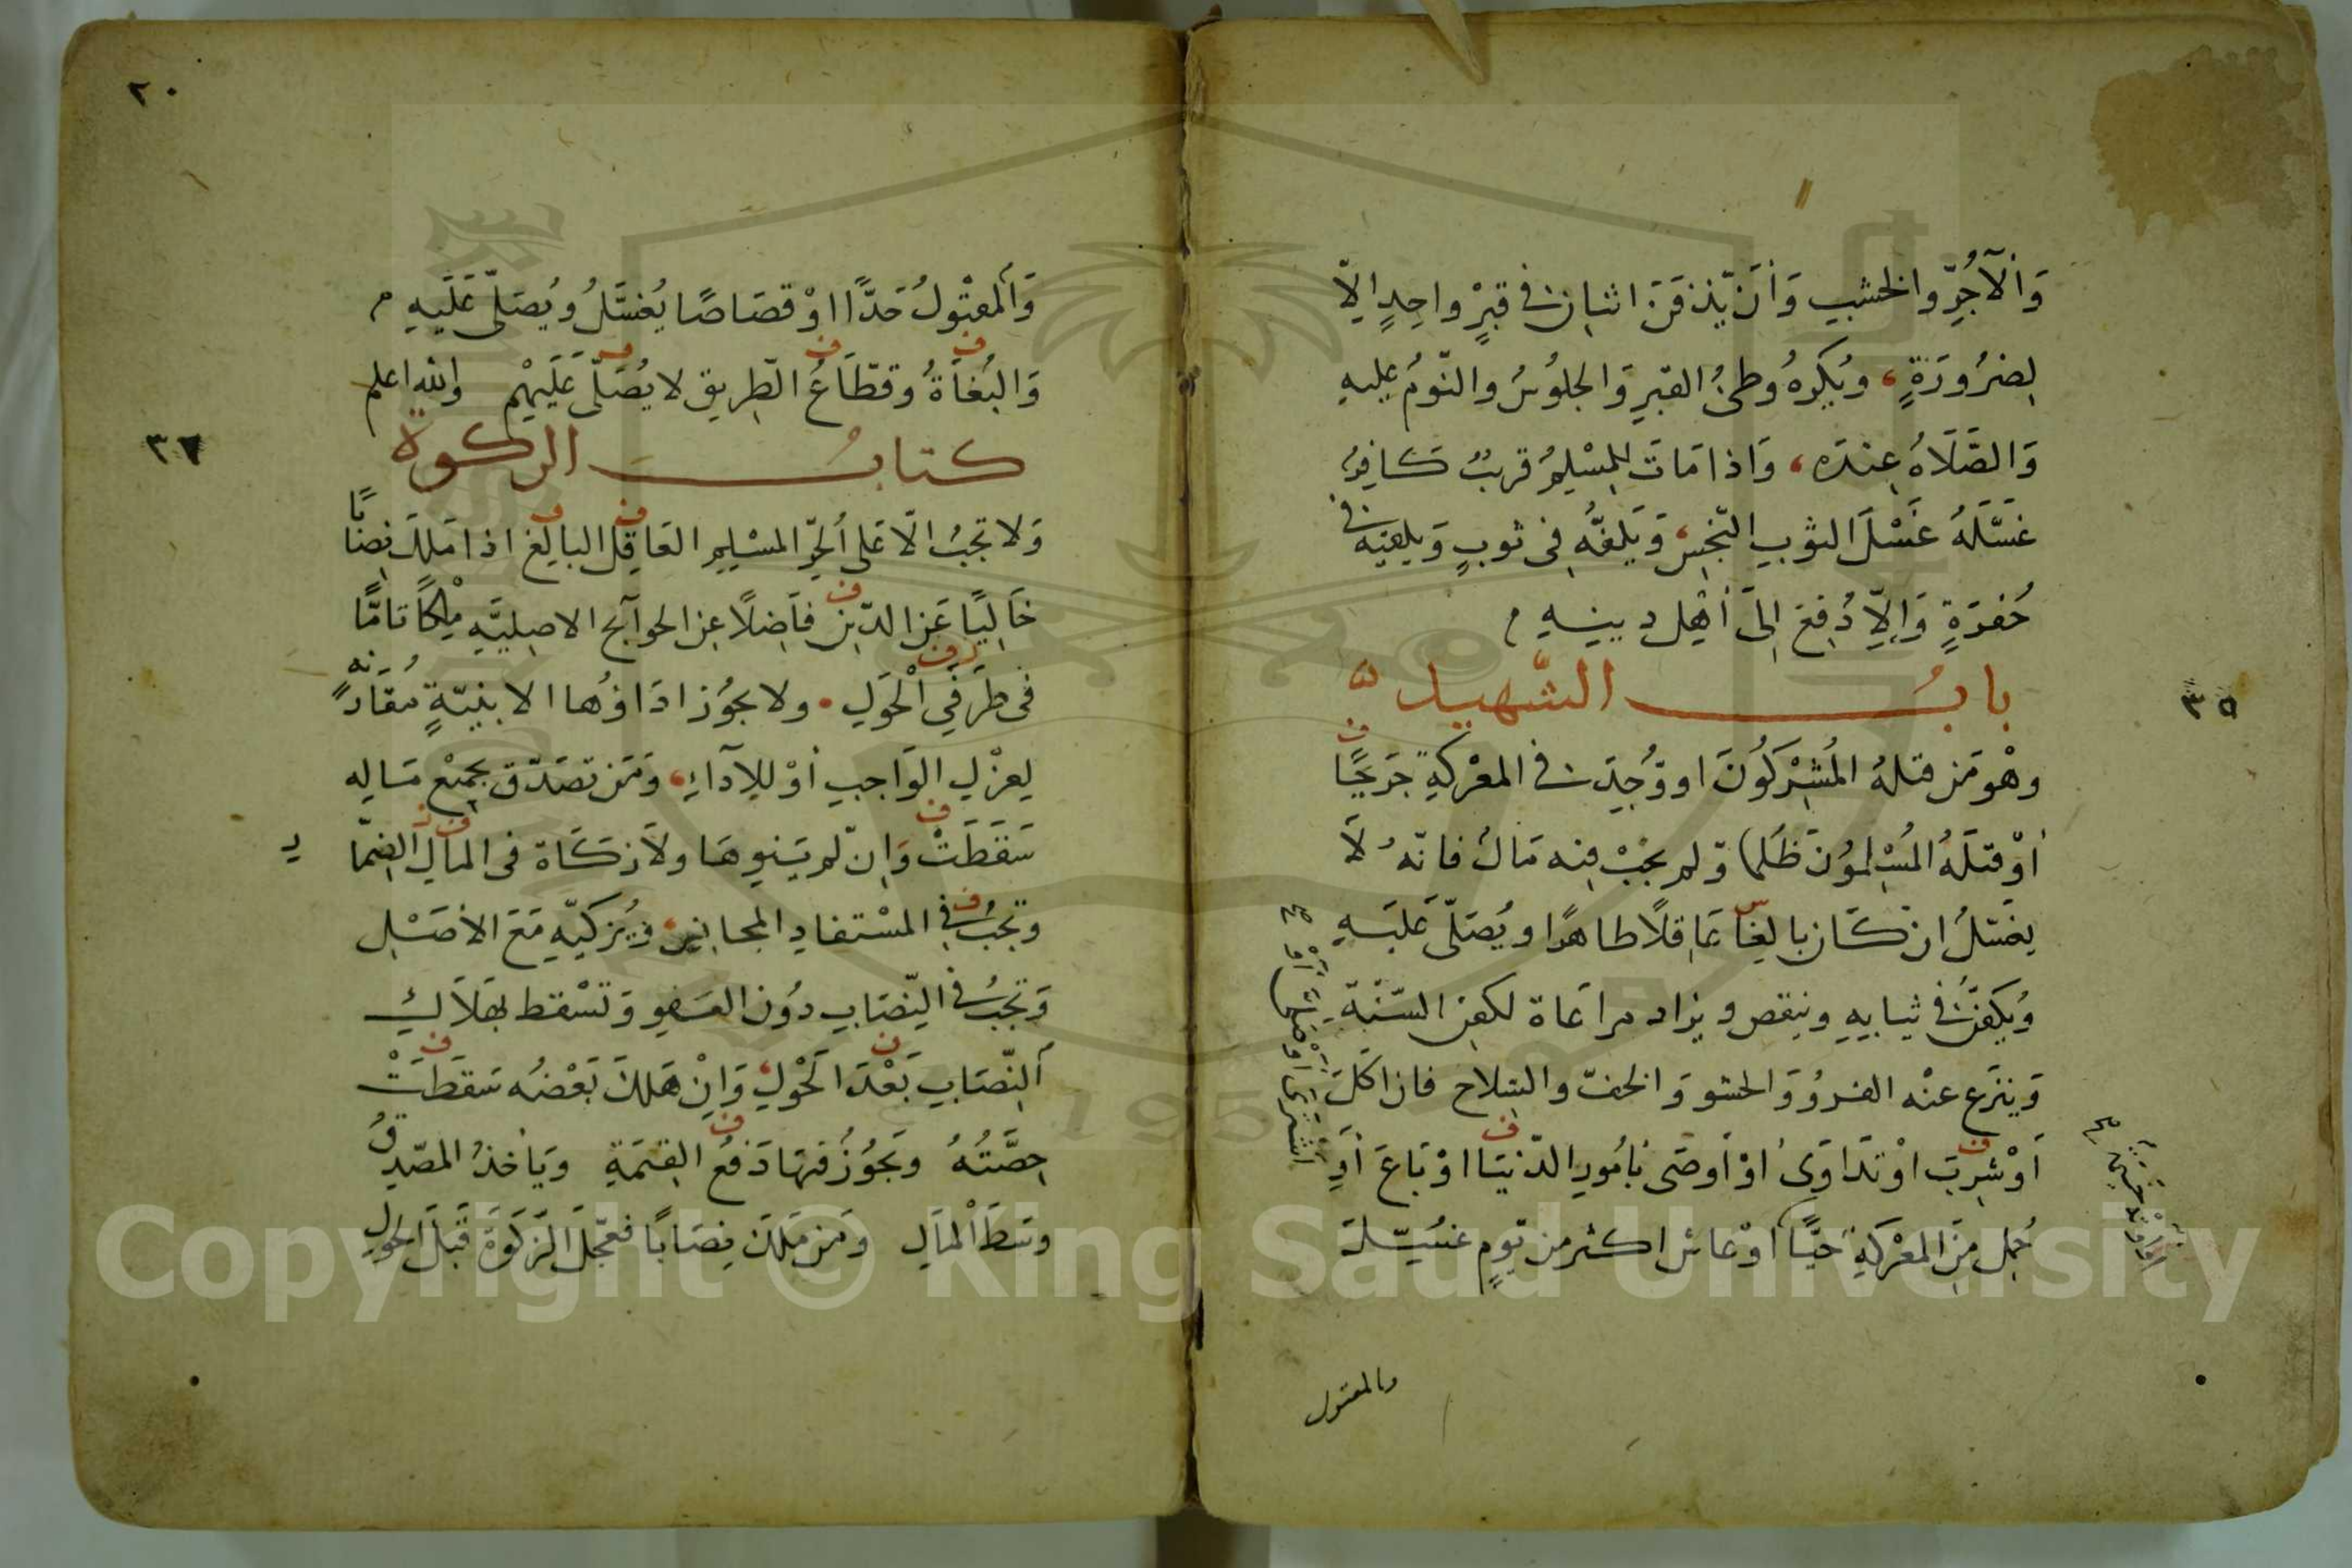 وَالآجُرِّ والخشبِ وَأَن يّدفَنَ اثنانِ في قبرٍ واحِدٍ الاّ
لِضرُورَةٍ، ويُكرهُ وطئُ القبرِ وَالجلوُسُ والنّومُ عليهِ
وَالصَّلَاةُ عِندَه، وَاذا مَاتَ للمسْلِمِ قريبٌ كافِرٌ
غسَّلَهُ غَسْلَ الثوبِ النّجِسِ، وَيَلفُّه في ثوبٍ وَيلقيه في
حُفرَةٍ وَالاّ دُفِعَ الىَ أهْلِ دينِهِ
بابُ الشّهيد
وهْوَ مَن قتلهُ المُشْرِكُونَ او وُجِدَ في المعْركةِ جَرِيحًا
أوْ قتلَهُ المُسْلموُنَ ظلما وّلم يجبْ فيه مَالٌ فانّهُ لَا
يغسَّلُ ان كَان بالِغًا عَاقِلًا طاهرًا ويُصَلّى عَلَيهِ
وُيكَفّنُ في ثيابِهِ وينقص ويزاد مراعَاة لكفنِ السّنّةِ
وَينزَع عنْه الفروُ وَالحشو وَالخفّ والسّلاح فان اكَلَ
اَوْ شرِبَ اوْ تدَاوَىٰ اوْ اَوصَى بأمُورِ الدّنيَا اوْ بَاعَ اَوِ
اشترى او صلى أوْ صح
حُمِل مِنَ المعْركةِ حَيًّا اَوْ عاش اكثر من يَومٍ غسِّلَ
والمقتول
٣٥
٢٠
وَالمقتْولُ حَدًّا اوْ قصَاصًا يُغسَّلُ ويُصَلّى عَلَيهِ
وَالبُغاَةُ وقطّاعُ الطّرِيق لا يُصَلّى عَلَيْهِم والله اعلم
كتابُ الزكوة
٣٦
وَلا تجبُ الّا عَلى الحُرّ المسْلِمِ العَاقِل البالِغ اذا مَلَكَ نِصَابًا
خَالِيًا عَنِ الدّينِ فاضِلًا عنِ الحوآئج الاصِليَّةِ مِلْكاً تامًّا
في طرَفيِ الحَولِ. ولا يجوُز ادَاؤُها الا بنيّةٍ مُقارَنَةٍ
لِعزْلِ الوَاجبِ أوْ لِلآدَاءِ، وَمَن تصَدّق بجميْعِ مَالِهِ
سَقطَتْ وَاِن لّم يَنوِهَا ولَا زكَاة في المالِ الضِّمَا
رِ
وتجبُ في المسْتفادِ المجانِسِ، وَيزكيّهِ مَعَ الاَصْلِ
وَتجبُ في النّصَابِ دوُن العَفوِ وَتسْقط بهَلَاكِ
النّصَابِ بَعْدَ الحَوْلِ، وَاِنْ هَلكَ بَعْضُه سَقطَتْ
حِصَّتُهُ وتَجوُزُ فيهَا دَفعُ القيمَةِ وَيَأخذُ المصّدّقُ
وسَطَ المَالِ وَمَن مَلكَ نِصَابًا فعَجّلَ الزكوَةَ قَبلَ الحَولِ
Copyright © King Saud University
1957